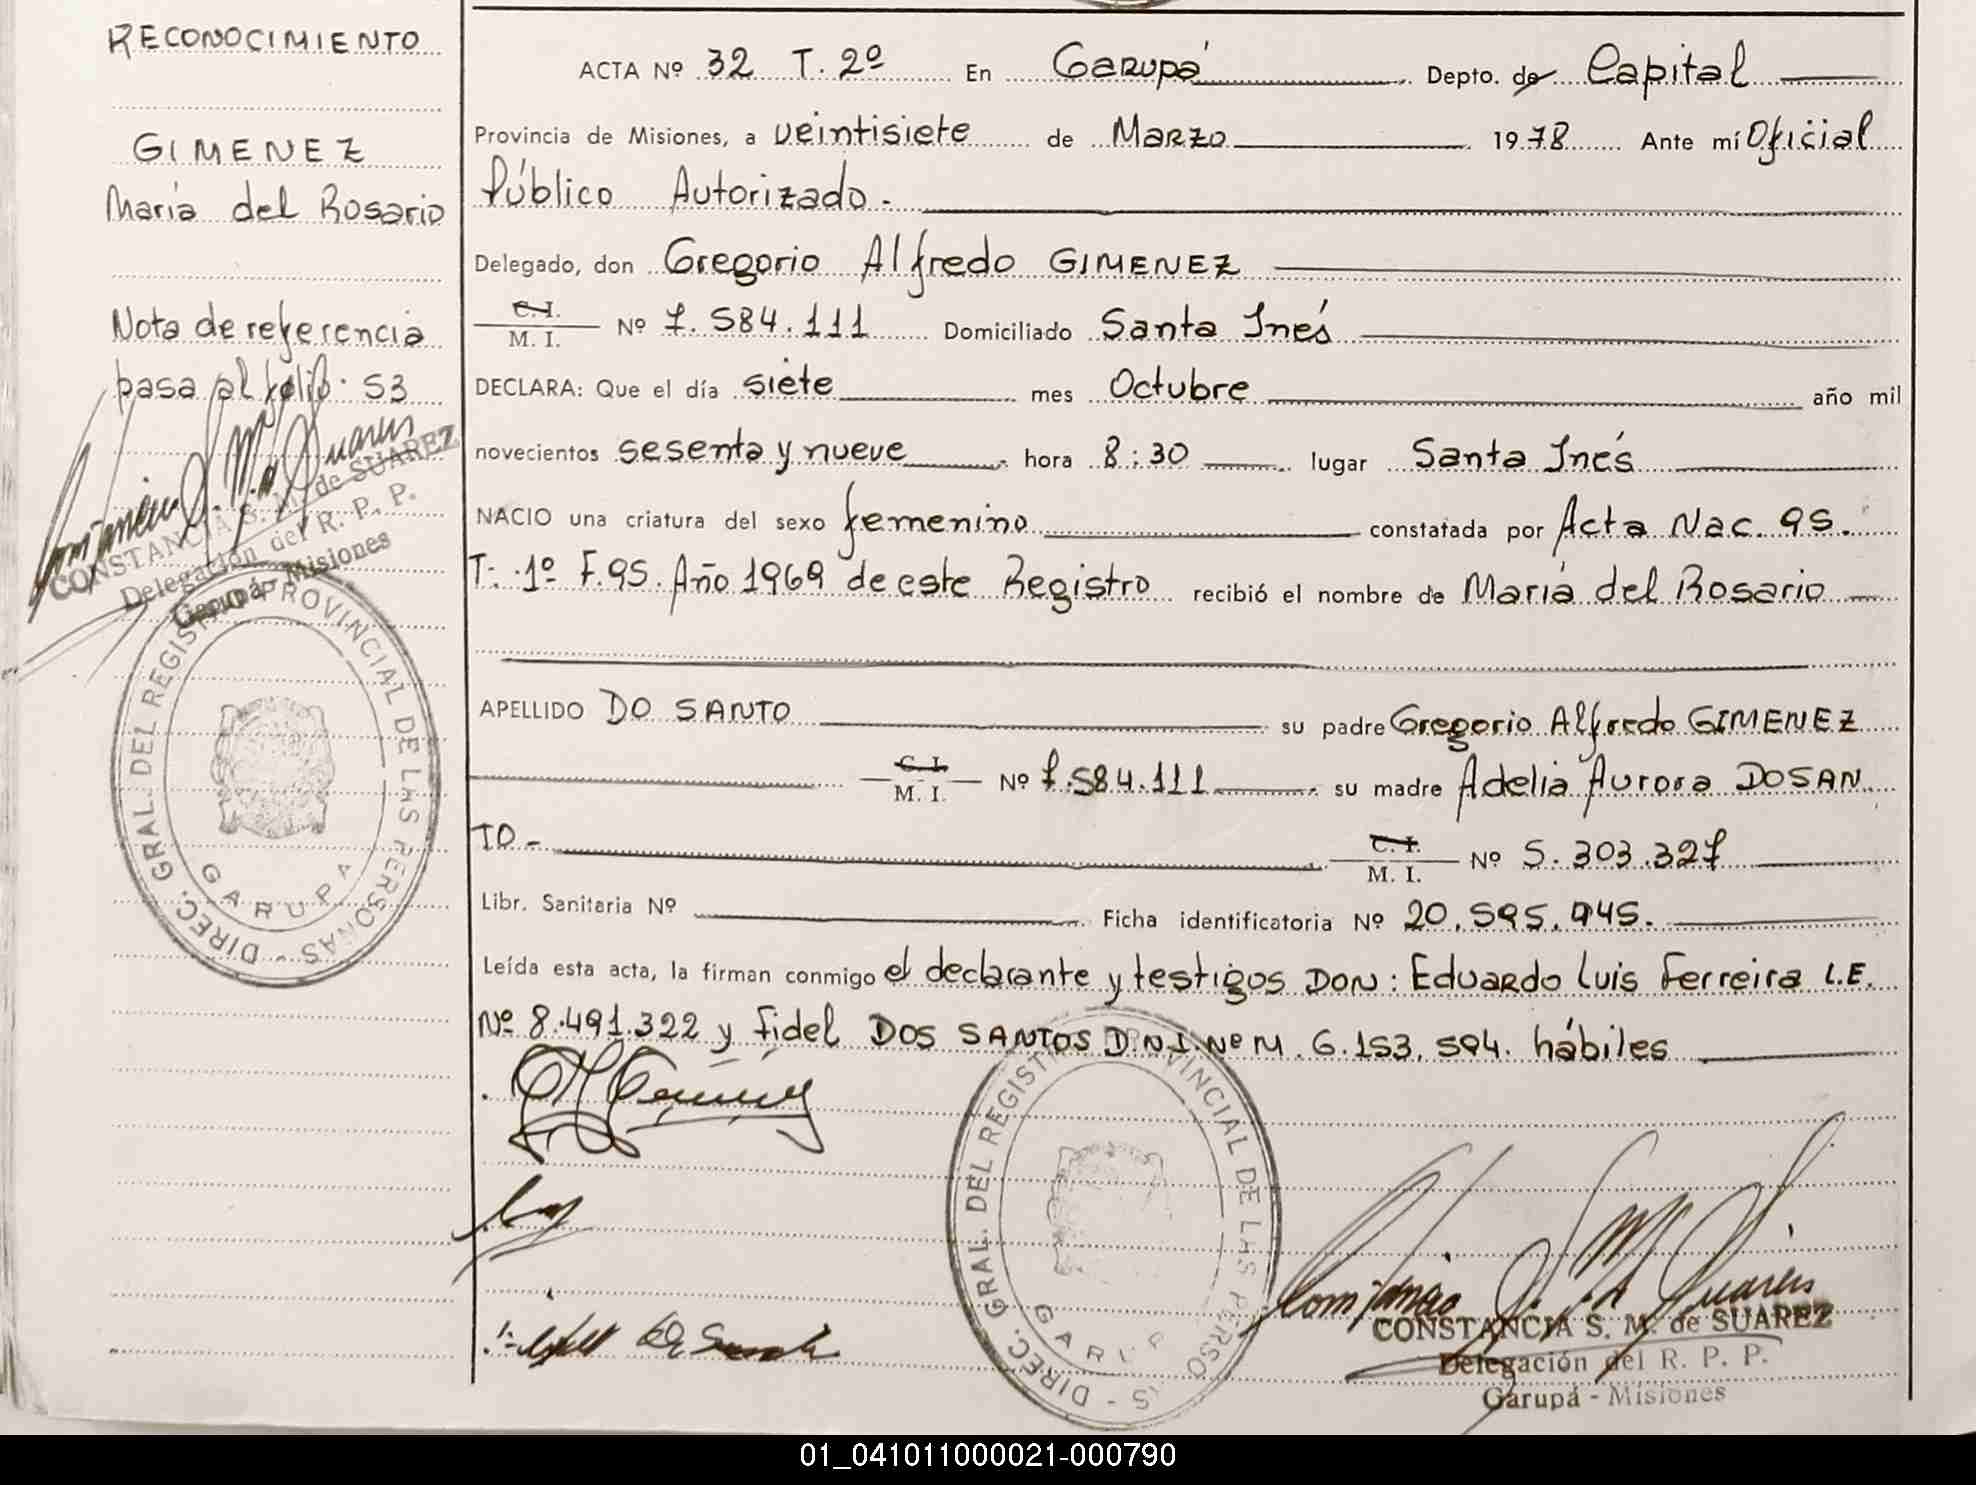 RECONOCIMIENTO
GIMENEZ
María del Rosario
Nota de referencia
pasa al folio: 53
CONSTANCIA S. M. de SUAREZ
Delegación del R. P. P.
Garupá - Misiones
DIREC. GRAL. DEL REGISTRO PROVINCIAL DE LAS PERSONAS -
GARUPA
ACTA Nº 32 T. 2º En Garupá Depto. de Capital
Provincia de Misiones, a veintisiete de Marzo 1978 Ante mí Oficial
Público Autorizado.-
Delegado, don Gregorio Alfredo GIMENEZ
C.I.
M. I. Nº 7.584.111 Domiciliado Santa Inés
DECLARA: Que el día siete mes Octubre año mil
novecientos sesenta y nueve hora 8:30 lugar Santa Inés
NACIO una criatura del sexo femenino constatada por Acta Nac. 95.
T: 1º F.95. Año 1969 de este Registro recibió el nombre de María del Rosario
APELLIDO DO SANTO su padre Gregorio Alfredo GIMENEZ
C. I.
M. I. Nº 7.584.111 su madre Adelia Aurora DOSAN
TO -
C. I.
M. I. Nº 5.303.327
Libr. Sanitaria Nº Ficha identificatoria Nº 20.595.945.
Leída esta acta, la firman conmigo el declarante y testigos DON: Eduardo Luis Ferreira L.E.
Nº 8.491.322 y Fidel DOS SANTOS D.N.I. Nº M. 6.153.594. hábiles
DIREC. GRAL. DEL REGIST VINCIAL DE LAS PERSO S -
GARUP
CONSTANCIA S. M. de SUAREZ
Delegación del R. P. P.
Garupá - Misiones
01_041011000021-000790